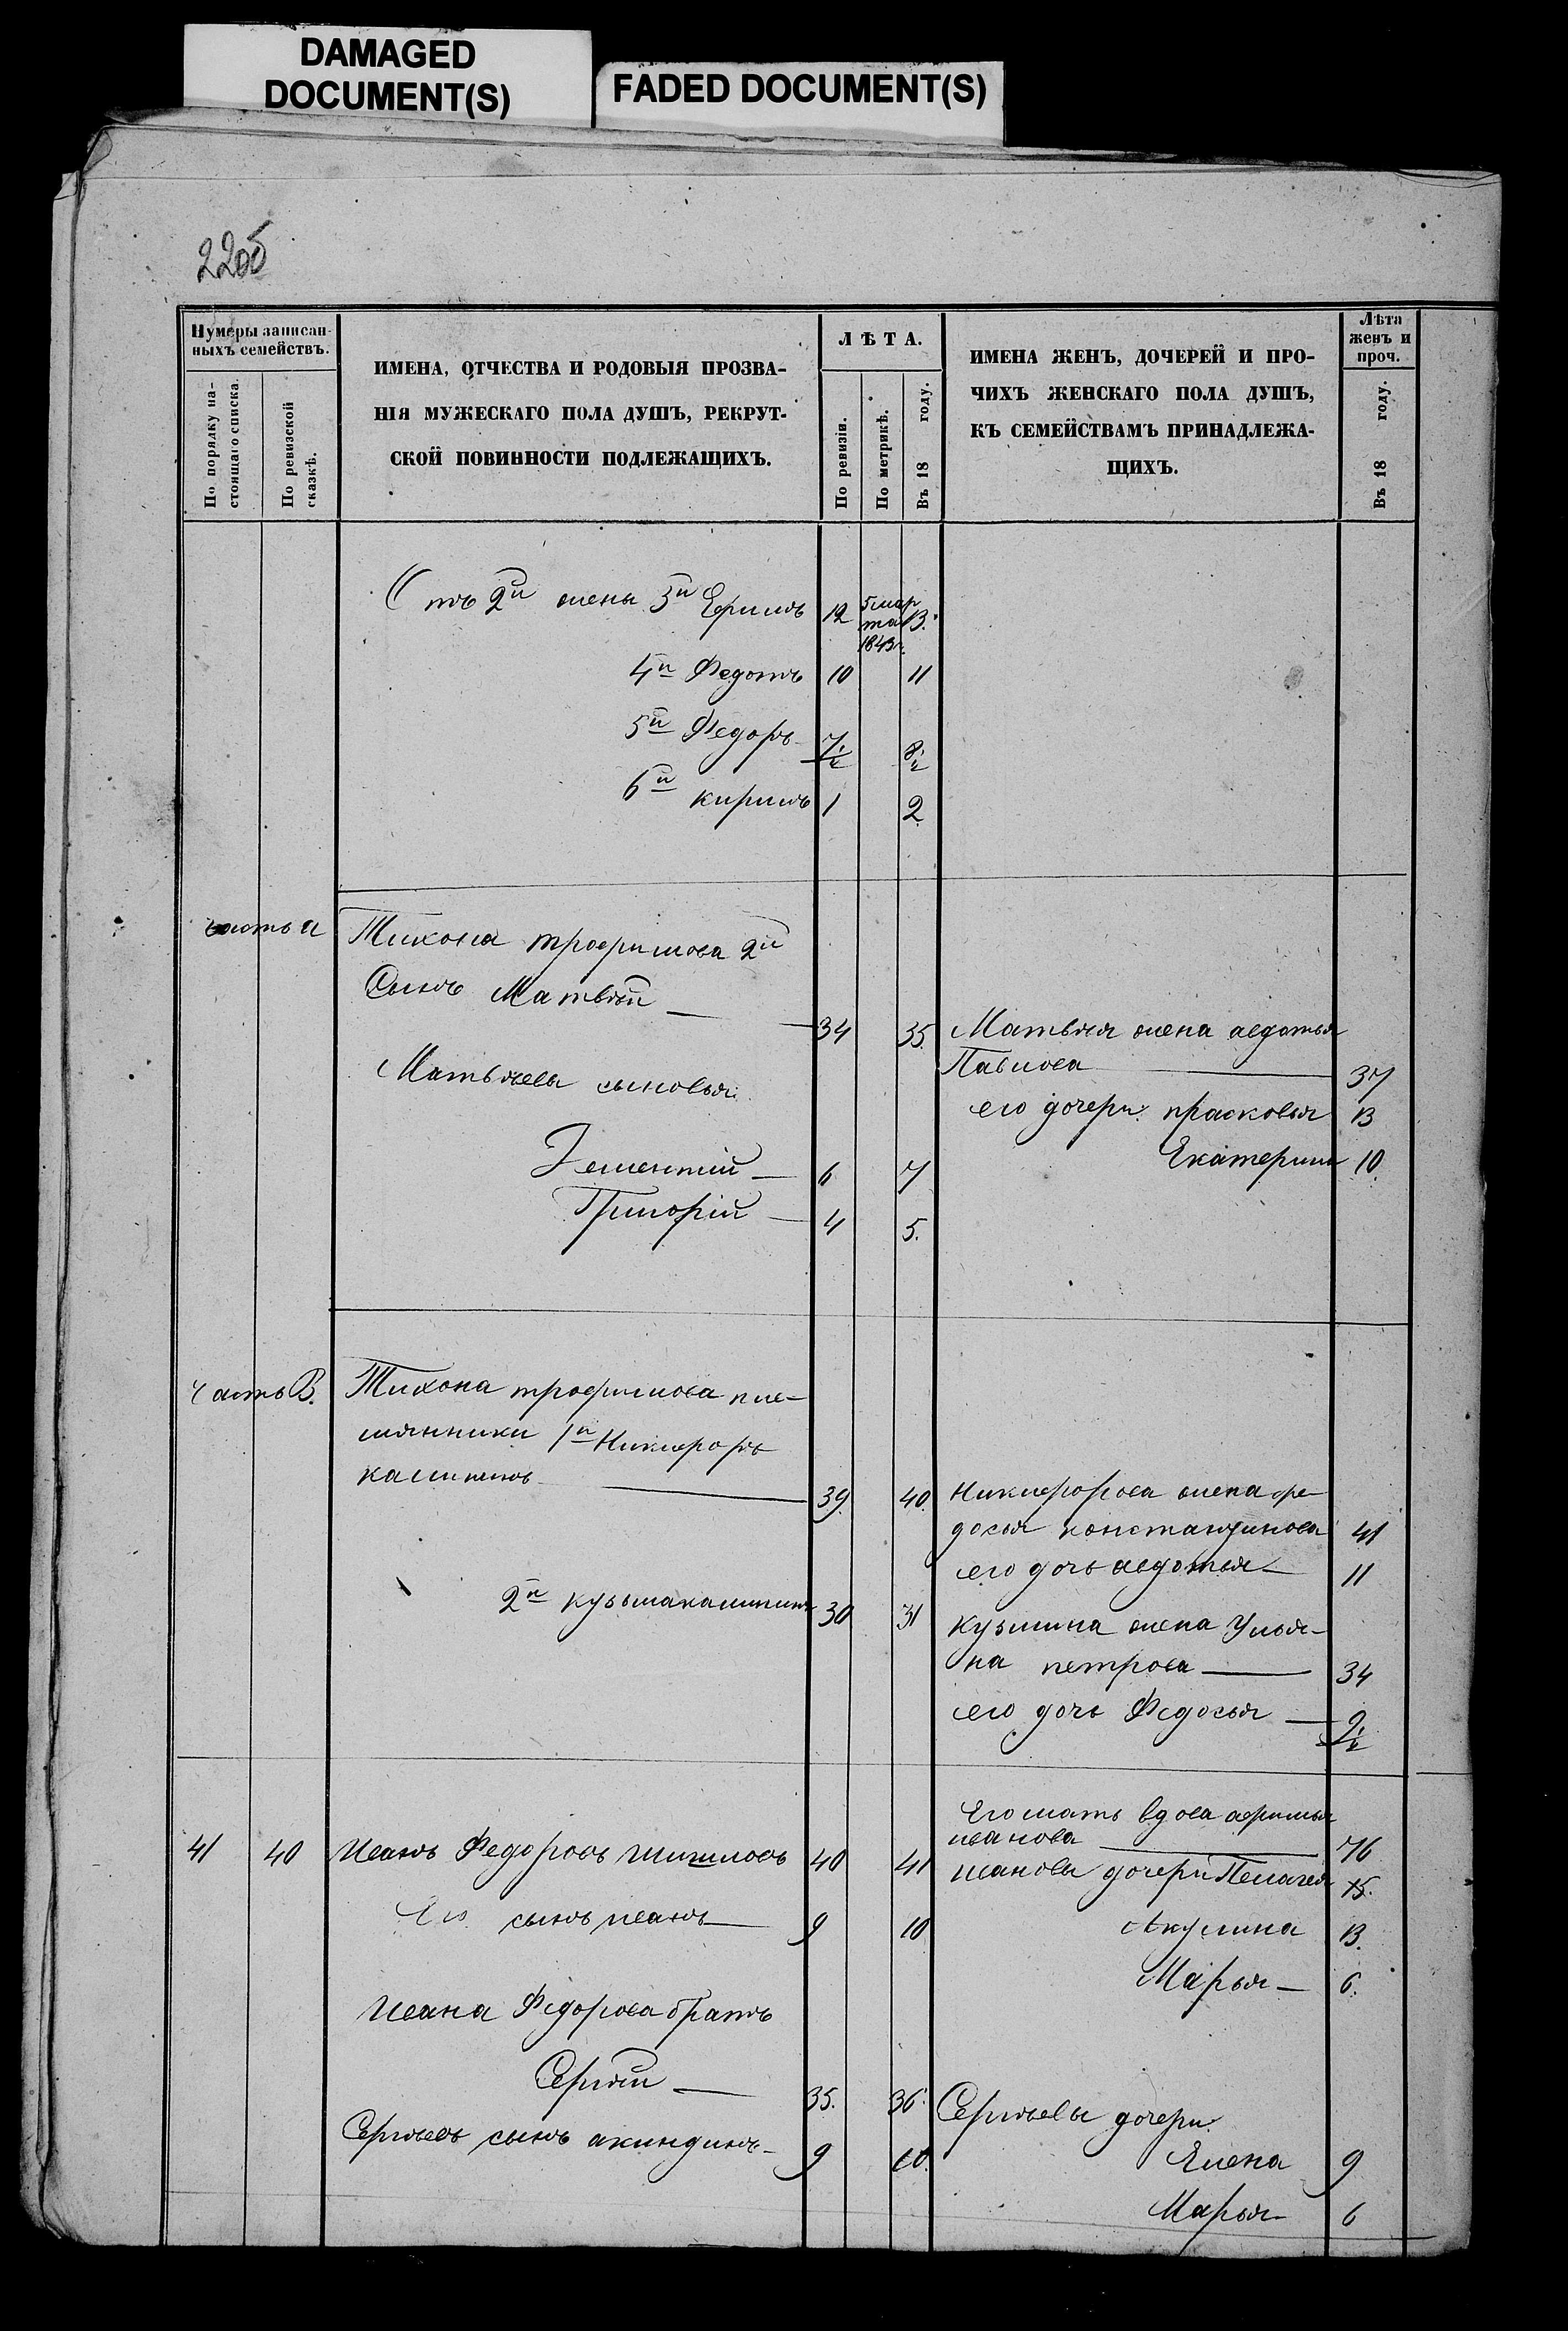 DAMAGED
DOCUMENT(S)
FADED DOCUMENT(S)
Нумеры записан-
ныхъ семействъ.
По порядку на-
стоящаго списка.
По ревизской
сказкѣ.
ИМЕНА, ОТЧЕСТВА И РОДОВЫЯ ПРОЗВА-
НІЯ МУЖЕСКАГО ПОЛА ДУШЪ, РЕКРУТ-
СКОЙ ПОВИННОСТИ ПОДЛЕЖАЩИХЪ.
ЛѢТА.
По ревизіи.
По метрикѣ.
Въ 18 году.
ИМЕНА ЖЕНЪ, ДОЧЕРЕЙ И ПРО-
ЧИХЪ ЖЕНСКАГО ПОЛА ДУШЪ,
КЪ СЕМЕЙСТВАМЪ ПРИНАДЛЕЖА-
ЩИХЪ.
Лѣта
женъ и
проч.
Въ 18 году.
Отъ 2й жены 3й 12 5 мар 13.
та
1843г.
4й Федотъ 10 11
5й Федоръ 7½ 8½
6й 1 2
часть а Тихона трофимова 2й
Сынъ Матвѣй 34 35. Матвѣя жена авдотья
Павлова 37
Матвѣевы сыновья: его дочери: прасковья 13
Екатерина 10.
Дементій 6 7
Григорій 4 5.
часть В. Тихона трофимова пле-
мянники 1й Никифоръ
калининъ 39 40. Никифорова жена фе-
досья константинова 41
его дочь авдотья 11
2й кузьма калининъ 30 31 Кузмина жена Улья-
на петрова 34
его дочь Федосья 9½
Его мать вдова афимья
иванова 76
41 40 Иванъ Федоровъ 40 41 ивановы дочери Пелагея 15.
Его сынъ иванъ 9 10 Акулина 13.
Марья 6.
Ивана Федорова братъ
Сергѣй 35. 36. Сергѣевы дочери:
Сергѣевъ сынъ акиндинъ 9 10. Елена 9
Марья 6